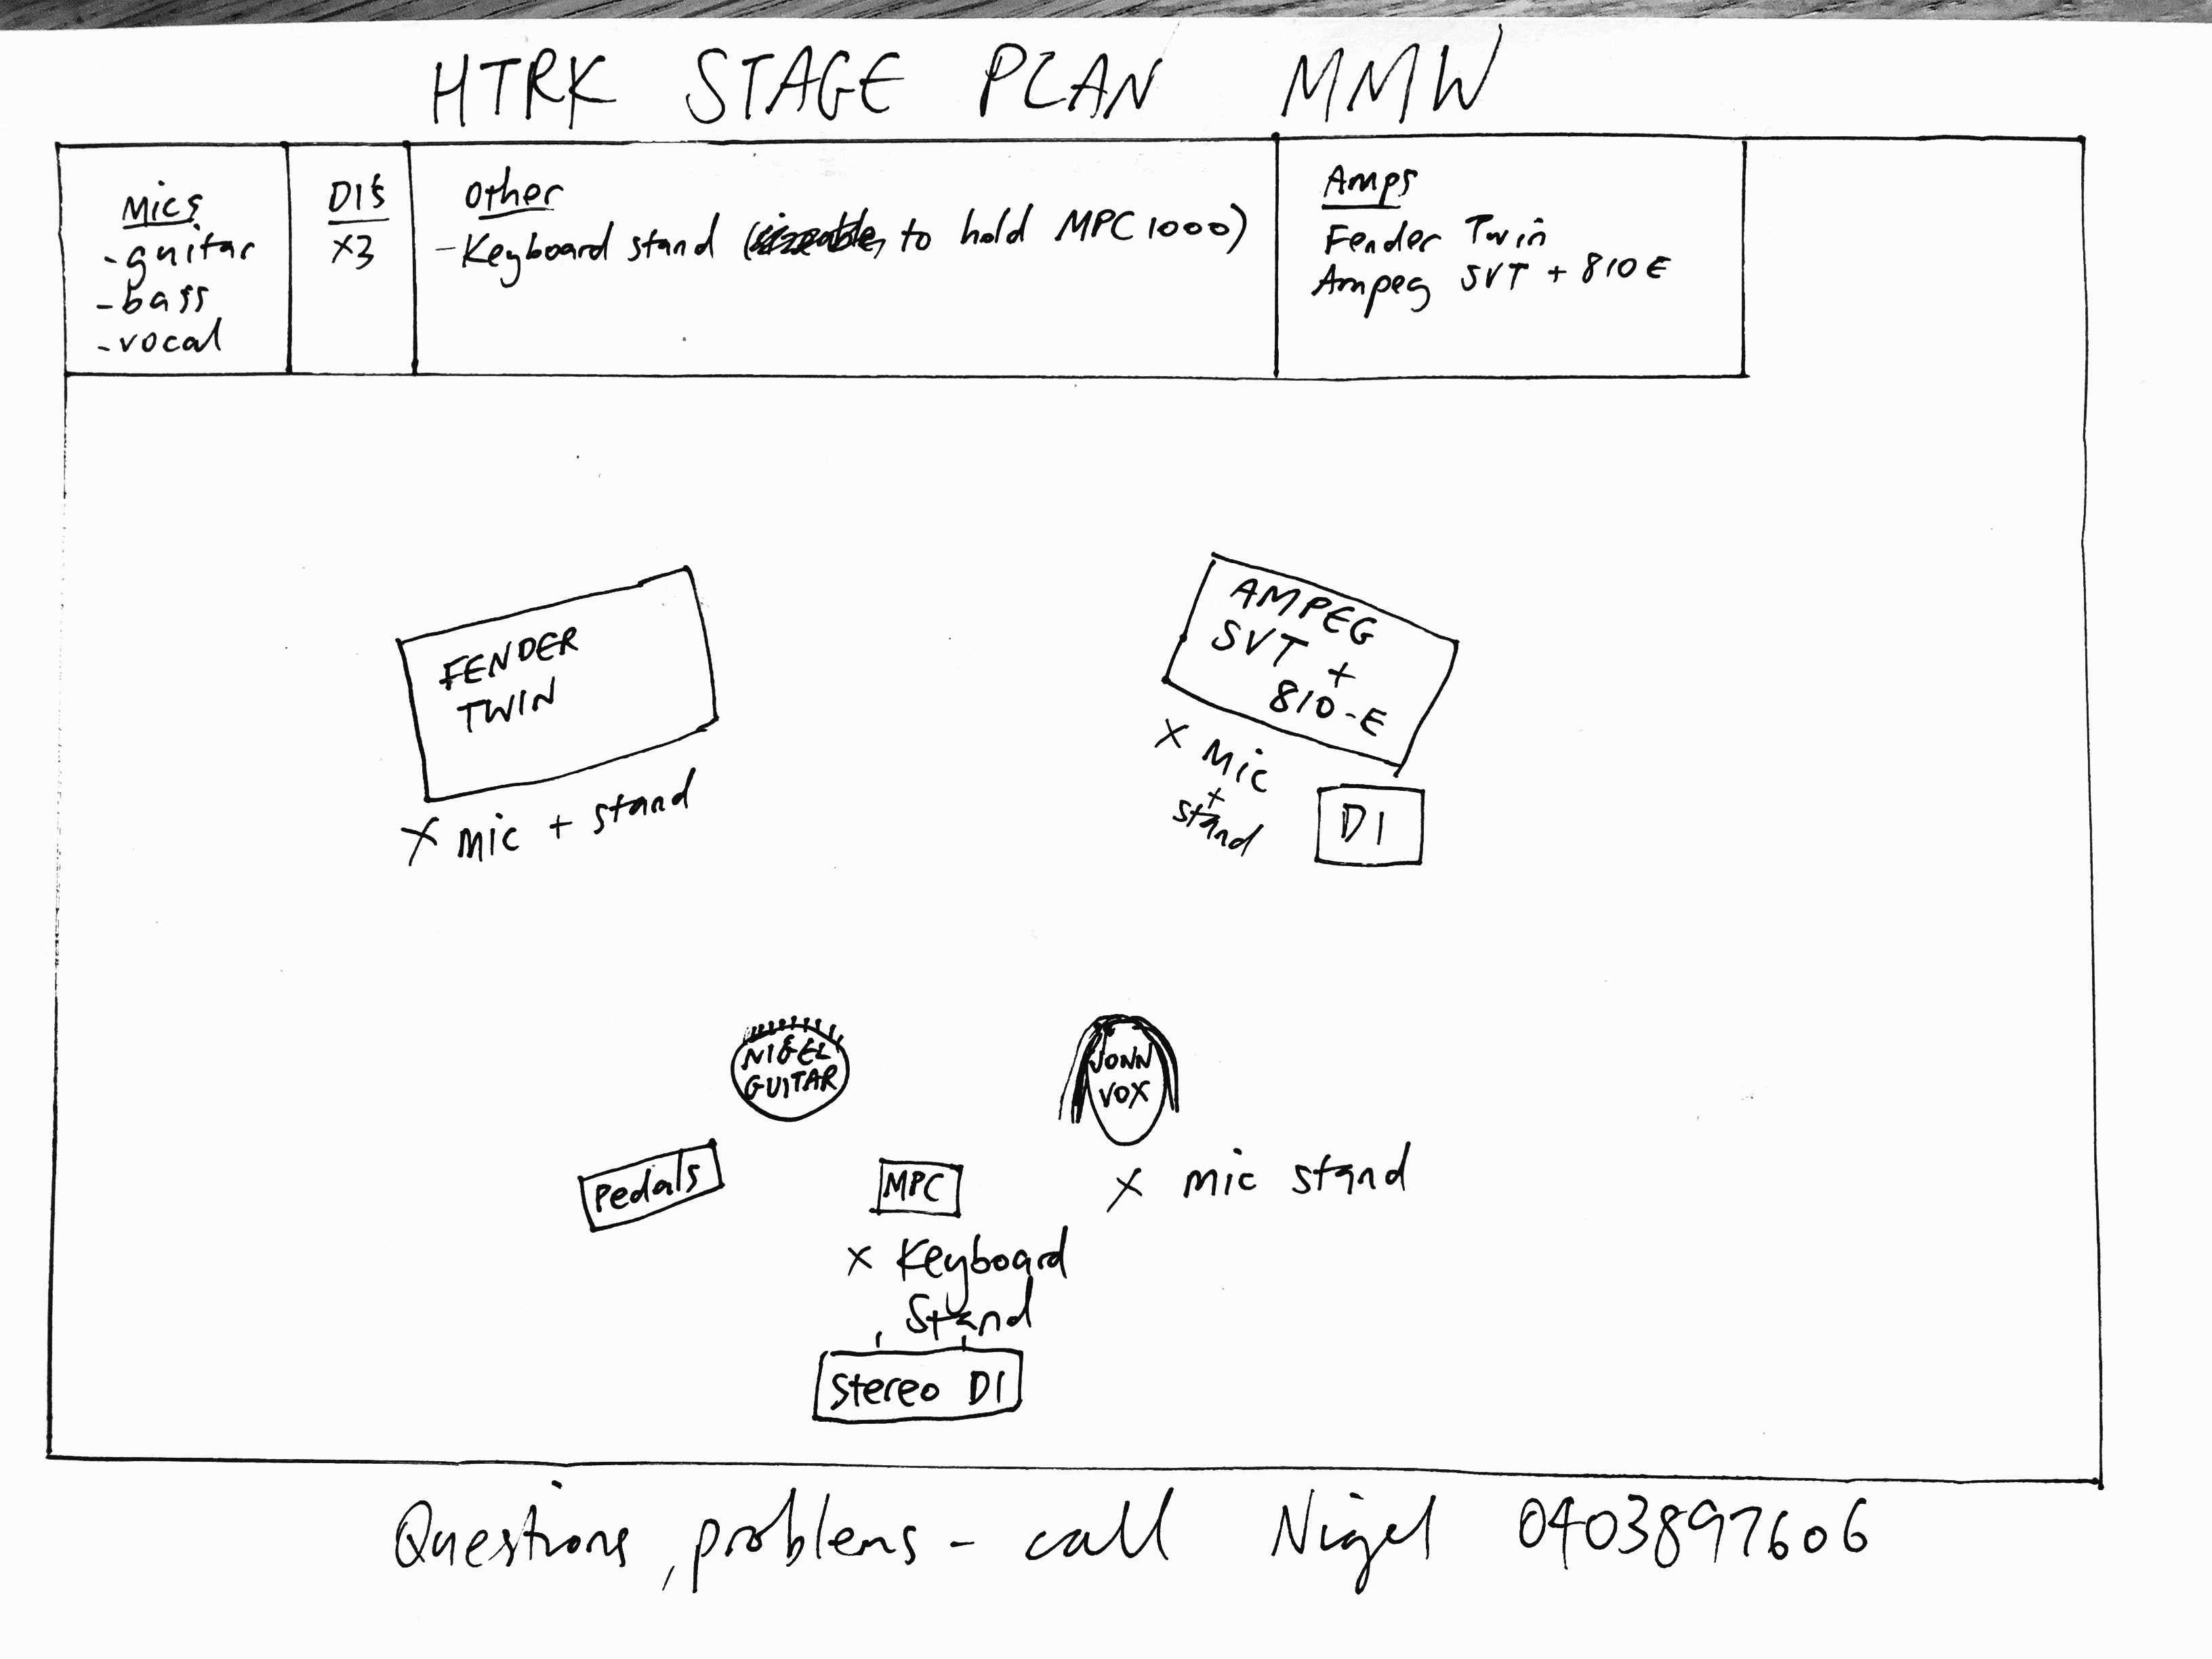 HTRK STAGE PLAN MMW
Mics
- guitar
- bass
- vocal
DI's
x3
Other
- Keyboard stand (sizeable, to hold MPC1000)
Amps
Fender Twin
Ampeg SVT + 810E
FENDER
TWIN
X mic + stand
AMPEG
SVT +
810-E
X Mic
+
stand
DI
NIGEL
GUITAR
JONN
VOX
Pedals
MPC
X mic stand
X Keyboard
Stand
Stereo DI
Questions, problems - call Nigel 0403897606